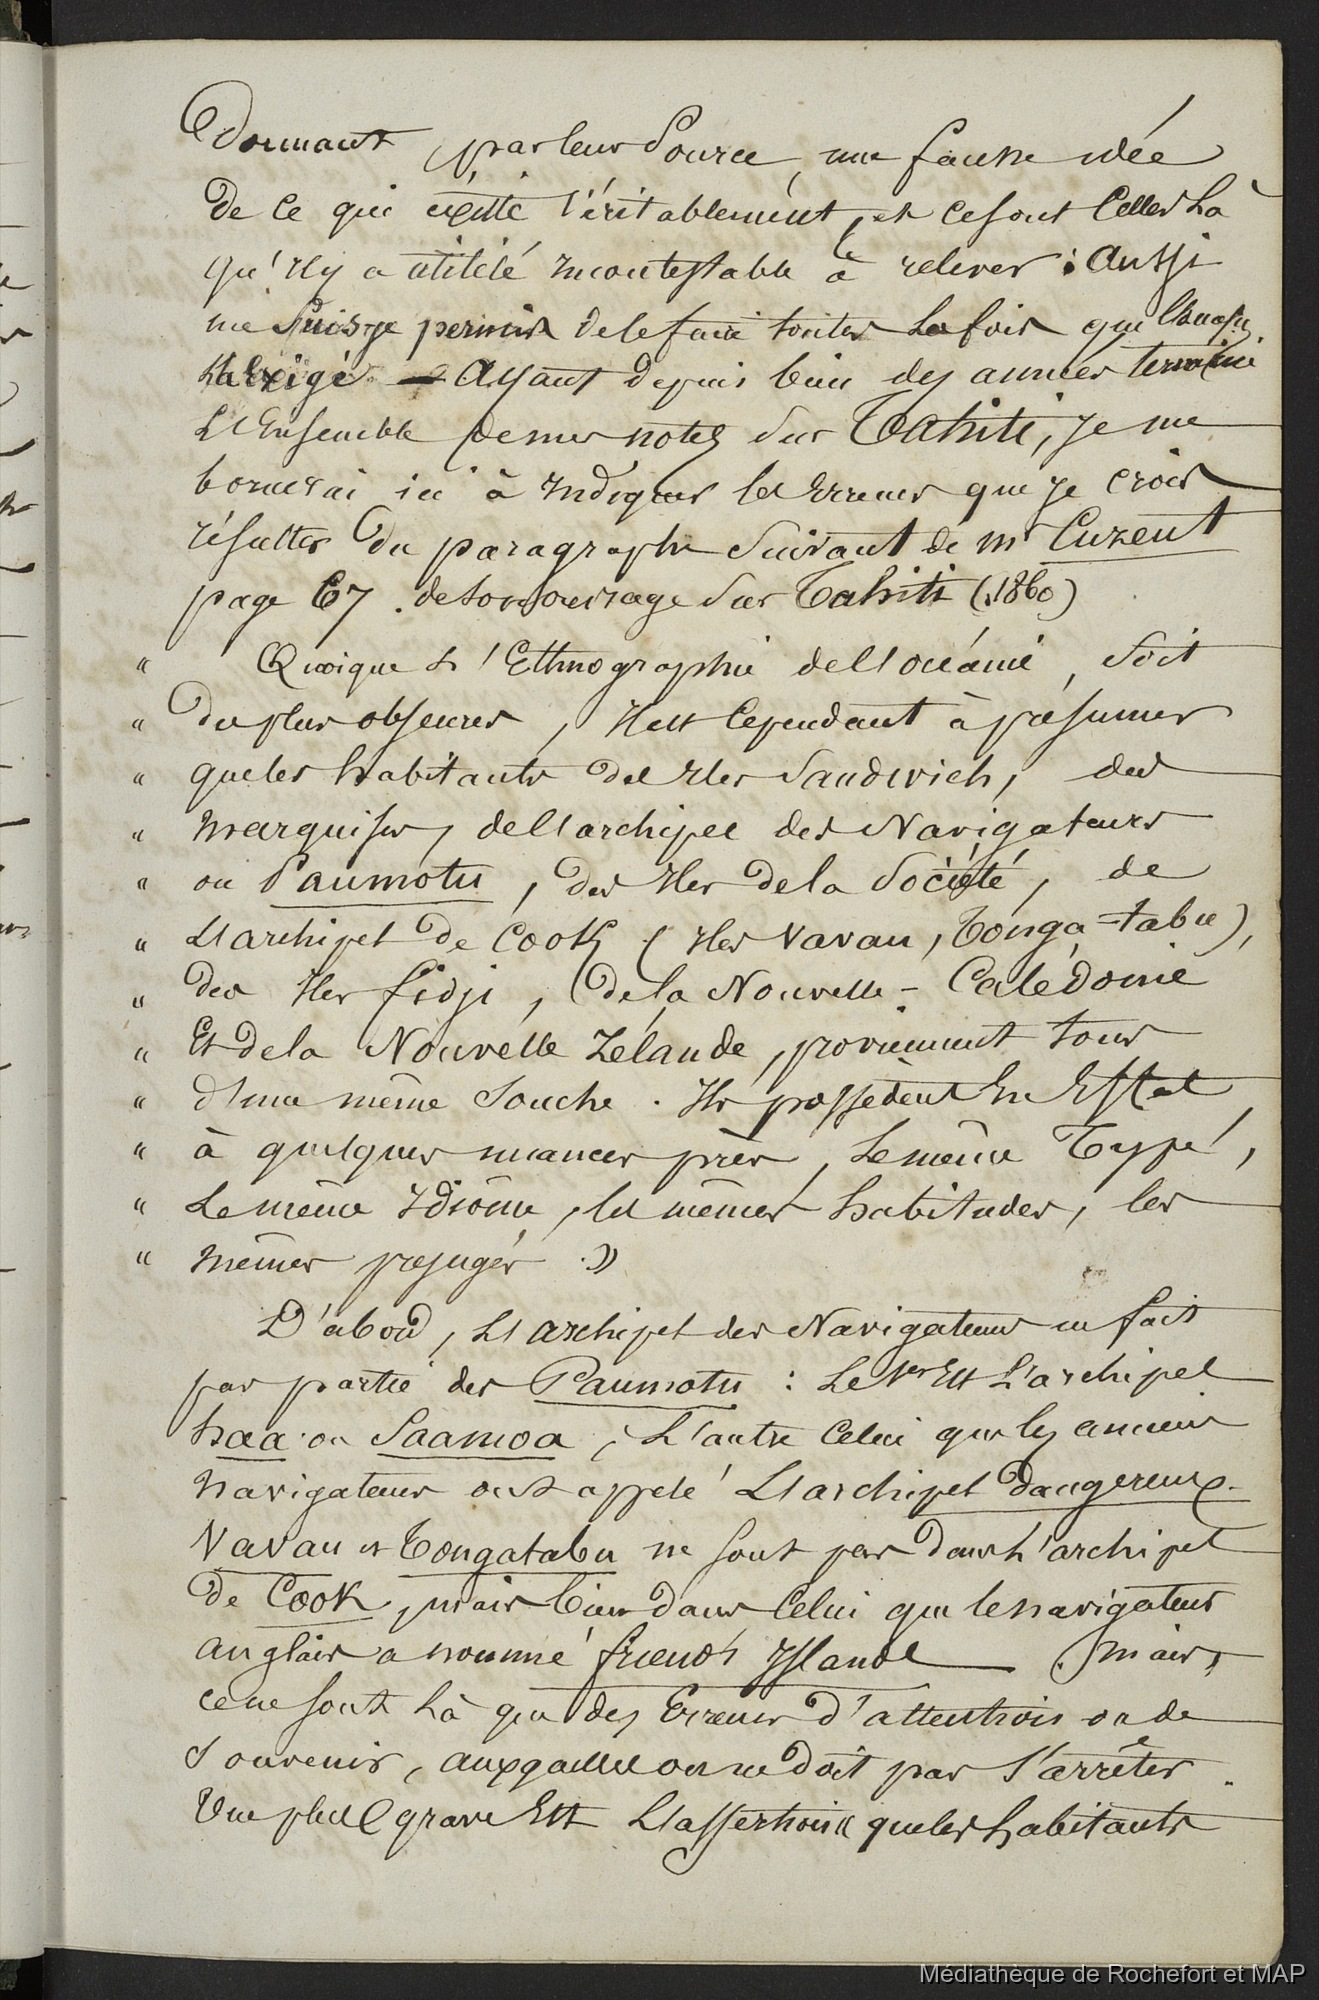 Donnant, par leur source, une fausse idée
de ce qui existe véritablement, et ce sont celles là
qu'il y a utilité incontestable à relever : Aussi
me suis-je permis de le faire toutes les fois que l'occasion
l'a exigé. — Ayant depuis bien des années terminé
l'Ensemble de mes notes sur Tahiti, je me
bornerai ici à indiquer les Erreurs que je crois
résulter du paragraphe suivant de mr Cuzent
page 67 . de son ouvrage sur Tahiti (1860)
" Quoique l'Ethnographie de l'océanie, soit
" des plus obscures, il est cependant à présumer
" que les habitants des iles Sandwich, des
" marquises, de l'archipel des Navigateurs
" ou Paumotu, des iles de la Société, de
" l'archipel de Cook (iles Vavau, Tonga-tabu),
" des iles fidji, de la Nouvelle-Calédonie
" Et de la Nouvelle Zélande, proviennent tous
" d'une même souche. Ils possèdent En Effet,
" à quelques nuances près, le même Type,
" le même idiôme, les mêmes habitudes, les
" mêmes préjugés .»
D'abord, l'archipel des Navigateurs ne fait
pas partie des Paumotu : le 1er Est l'archipel
haa ou Saamoa, l'autre celui que les anciens
navigateurs ont appelé l'archipel dangereux.
Vavau et Tongatabu ne sont pas dans l'archipel
de Cook, mais bien dans celui que le navigateur
anglais a nommé friend's Island — . mais,
ce ne sont là que des Erreurs d'attention ou de
souvenir, auxquelles on ne doit pas s'arrêter.
Une plus grave Est l'assertion « que les habitants
Médiathèque de Rochefort et MAP